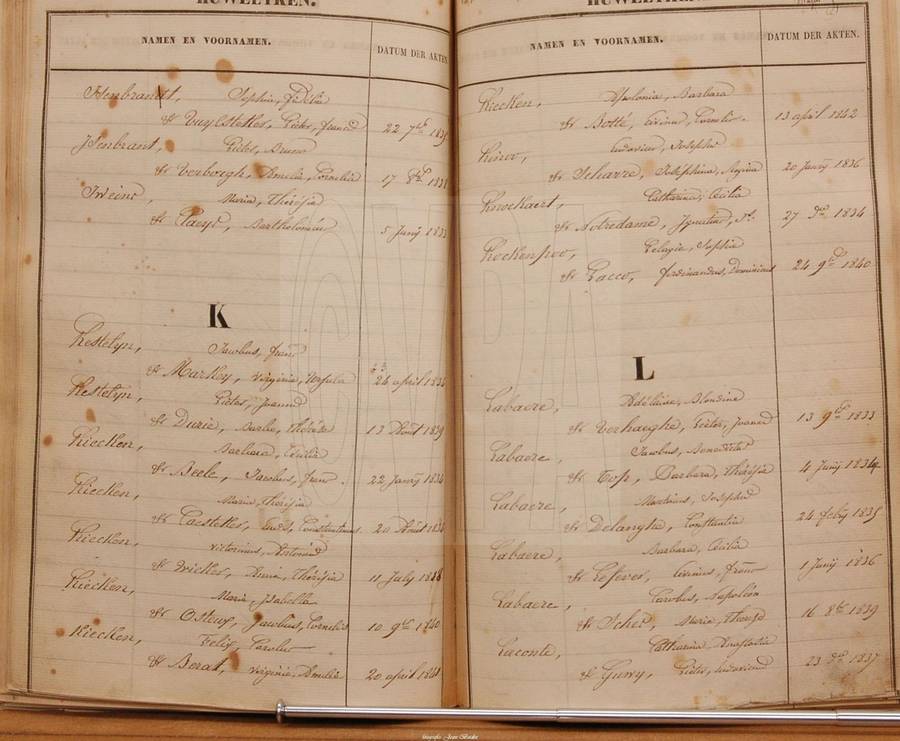 HUWELYKEN.
NAMEN EN VOORNAMEN. DATUM DER AKTEN.
Isenbrandt, Sophia,
& Vuylsteker, Pieter, Franció 22 7bre
Isenbrant, Pieter, Bruno
& Verborgh, Amelia, Cornelia 17 8bre
Iweins, Maria, Thérésia
& Claeys, Bartholomeus 5 Juny
K
Kestelyn, Jacobus, Fran
& Markey, Virginia, Ursula 26 april
Kestelyn, Pieter, Joannes
& Durie, Barbe, Thérèse 13 Août 1839
Kiecken, Barbara, Cecilia
& Beele, Jacobus, Fran. 22 January
Kiecken, Maria, Thérésia
& Caesteker, Constantinus 20 Août
Kiecken, Victorinus, Antonius
& Wicker, Anna, Thérésia 11 July
Kiecken, Maria, Isabella
& Osteux, Jacobus, Cornelis 10 9bre 1840
Kiecken, Felix, Carolus
& Berat, Virginia, Amelia 20 april
HUWELYKEN.
NAMEN EN VOORNAMEN. DATUM DER AKTEN.
Kiecken, Apolonia, Barbara
& Botté, Cornelis. 13 april 1842
Ludovicus, Josephus
& Scharre, Josephina, Regina 20 Juny 1836
Knockaert, Catharina, Cecilia
& Notredame, Ignatius, 27 1834
Kockenpoo, Pelagie, Sophia
& Pacco, Ferdinandus, Dominicus 24 9bre 1840
L
Labaere, Adélaïne, Blondine
& Verhaeghe, Pieter, Joannes 13 9bre 1833
Labaere, Jacobus, Benedictus
& Top, Barbara, Thérésia 4 Juny 1834
Labaere, Martinus, Josephus
& Delanghe, Constantia 24 feby 1835
Labaere, Barbara, Cecilia
& Lefever, Franc 1 Juny 1836
Labaere, Carolus, Napoléon
& Scher, Marie, Therese 16 8bre 1839
Laconte, Catharina, Anastasia
& Guwy, Pieter, Ludovicus 23 1837
CVPA